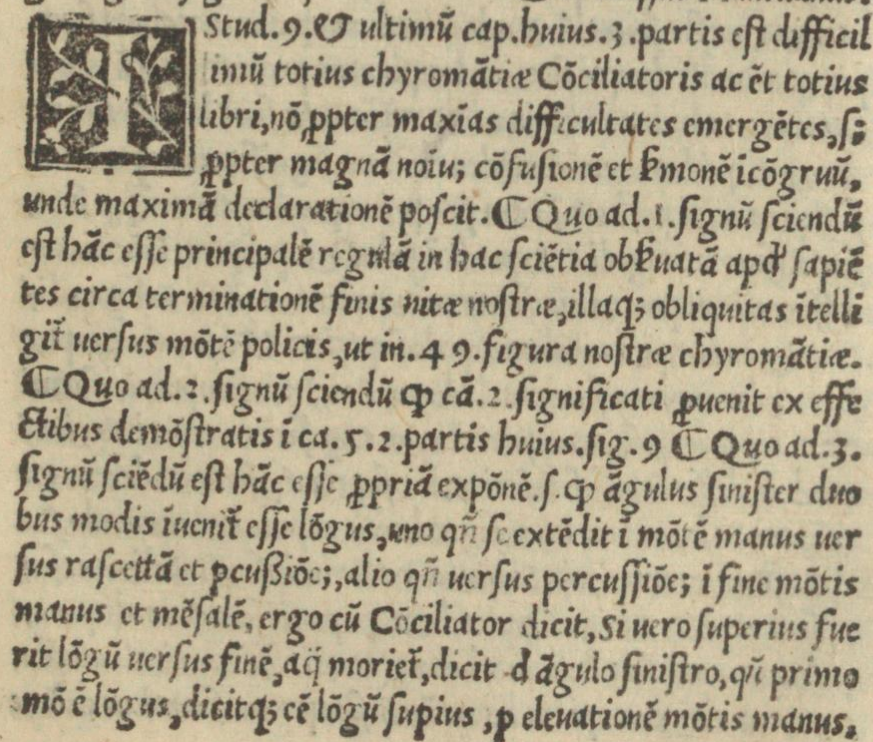 IStud.9.& ultimũ cap.huius.3.partis est difficil
imũ totius chyromãtiæ Cõciliatoris ac ẽt totius
libri,nõ ꝓpter maxĩas difficultates emergẽtes,sꝫ
ꝓpter magnã noĩuꝫ cõfusionẽ et ẜmonẽ ĩcõgruũ,
unde maximã declarationẽ poscit.⸿Quo ad.1.signũ sciendũ
est hãc esse principalẽ regulã in hac sciẽtia obẜuatã apď sapiẽ
tes circa terminationẽ finis uitæ nostræ,illaqꝫ obliquitas ĩtelli
git᷑ uersus mõtẽ policis,ut in.49.figura nostræ chyromãtiæ.
⸿Quo ad.2.signũ sciendũ ꝙ cã.2.significati ꝓuenit ex effe
ctibus demõstratis ĩ ca.5.2.partis huius.sig.9 ⸿Quo ad.3.
signũ sciẽdũ est hãc esse ꝓpriã expõnẽ.s.ꝙ ãgulus sinister duo
bus modis ĩuenit᷑ esse lõgus,uno qñ se extẽdit ĩ mõtẽ manus uer
sus rascettã et ꝑcußiõeꝫ,alio qñ uersus percussiõeꝫ ĩ fine mõtis
manus et mẽsalẽ,ergo cũ Cõciliator dicit,Si uero superius fue
rit lõgũ uersus finẽ,aq̃ moriet᷑,dicit đ ãgulo sinistro,qñ primo
mõ ẽ lõgus,dicitqꝫ cẽ lõgũ supius,ꝑ eleuationẽ mõtis manus,